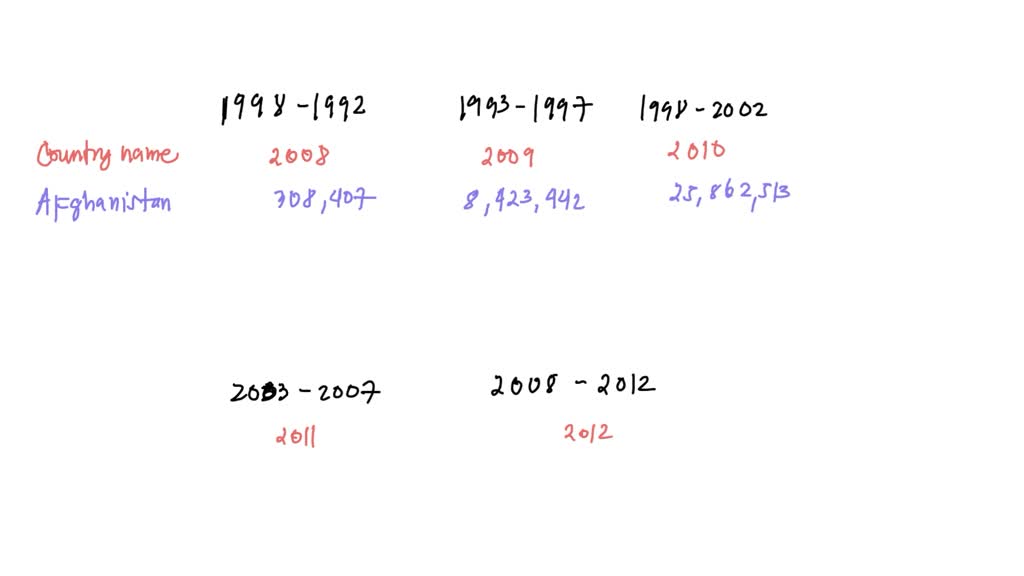 1998-1992 1993-1997 1998-2002
Country name 2008 2009 2010
Afghanistan 308,407 8,423,442 25,862,513
2003-2007 2008-2012
2011 2012